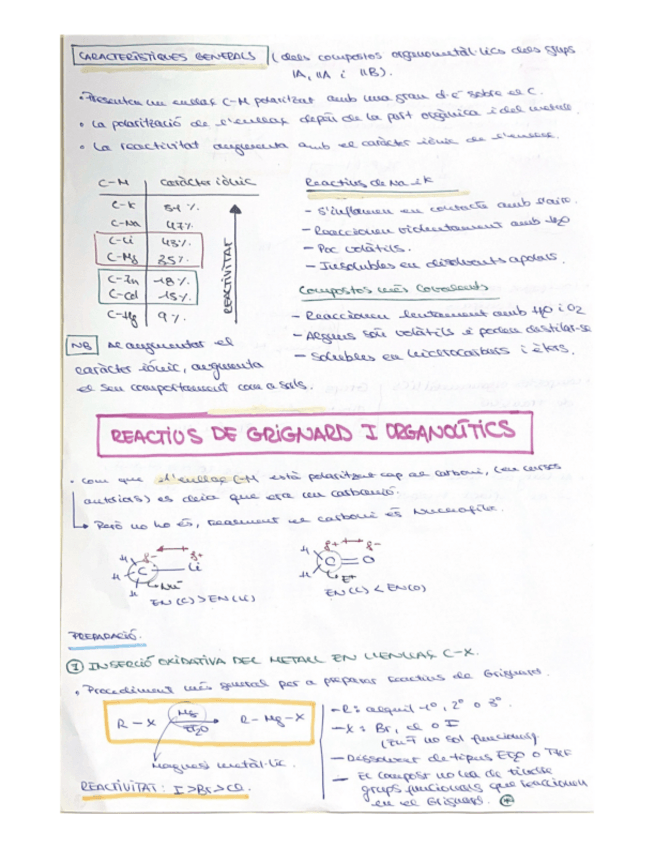 CARACTERÍSTIQUES GENERALS (dels compostos organometàl·lics dels grups
IA, IIA i IIB).
• Presenten un enllaç C-M polaritzat amb una gran d⁻é sobre el C.
• La polarització de l'enllaç depèn de la part orgànica i del metall.
• La reactivitat augmenta amb el caràcter iònic de l'enllaç.
C-M caràcter iònic
C-K 51%
C-Na 47%
C-Li 43%
C-Mg 35%
C-Zn 18%
C-Cd 15%
C-Hg 9%
REACTIVITAT
NB Al augmentar el
caràcter iònic, augmenta
el seu comportament com a sals.
Reactius de Na i K
- S'inflamen en contacte amb l'aire.
- Reaccionen violentament amb H2O
- Poc volàtils.
- Insolubles en dissolvents apolars.
Compostos més Covalents
- Reaccionen lentament amb H2O i O2
- Alguns són volàtils i poden destilar-se
- Solubles en hidrocarburs i èters.
REACTIUS DE GRIGNARD I ORGANOLÍTICS
• Com que l'enllaç C-M està polaritzat cap al carboni, (en cursos
anteriors) es deia que era un carbanió.
↳ Però no ho és, realment el carboni és Nucleòfil.
H H H δ- δ+ C Li Nu-
EN(C) > EN(Li)
H H δ+ δ- C=O E+
EN(C) < EN(O)
PREPARACIÓ.
① INSERCIÓ OXIDATIVA DEL METALL EN L'ENLLAÇ C-X.
• Procediment més general per a preparar reactius de Grignard.
R-X Mg Et2O R-Mg-X
Magnesi metàl·lic.
REACTIVITAT: I>Br>Cl.
- R: alquil 1º, 2º o 3º.
- X: Br, Cl o I
(En F no sol funcionar)
- Dissolvent de tipus Et2O o THF
- El compost no ha de tindre
grups funcionals que reaccionen
en el Grignard. ⊛